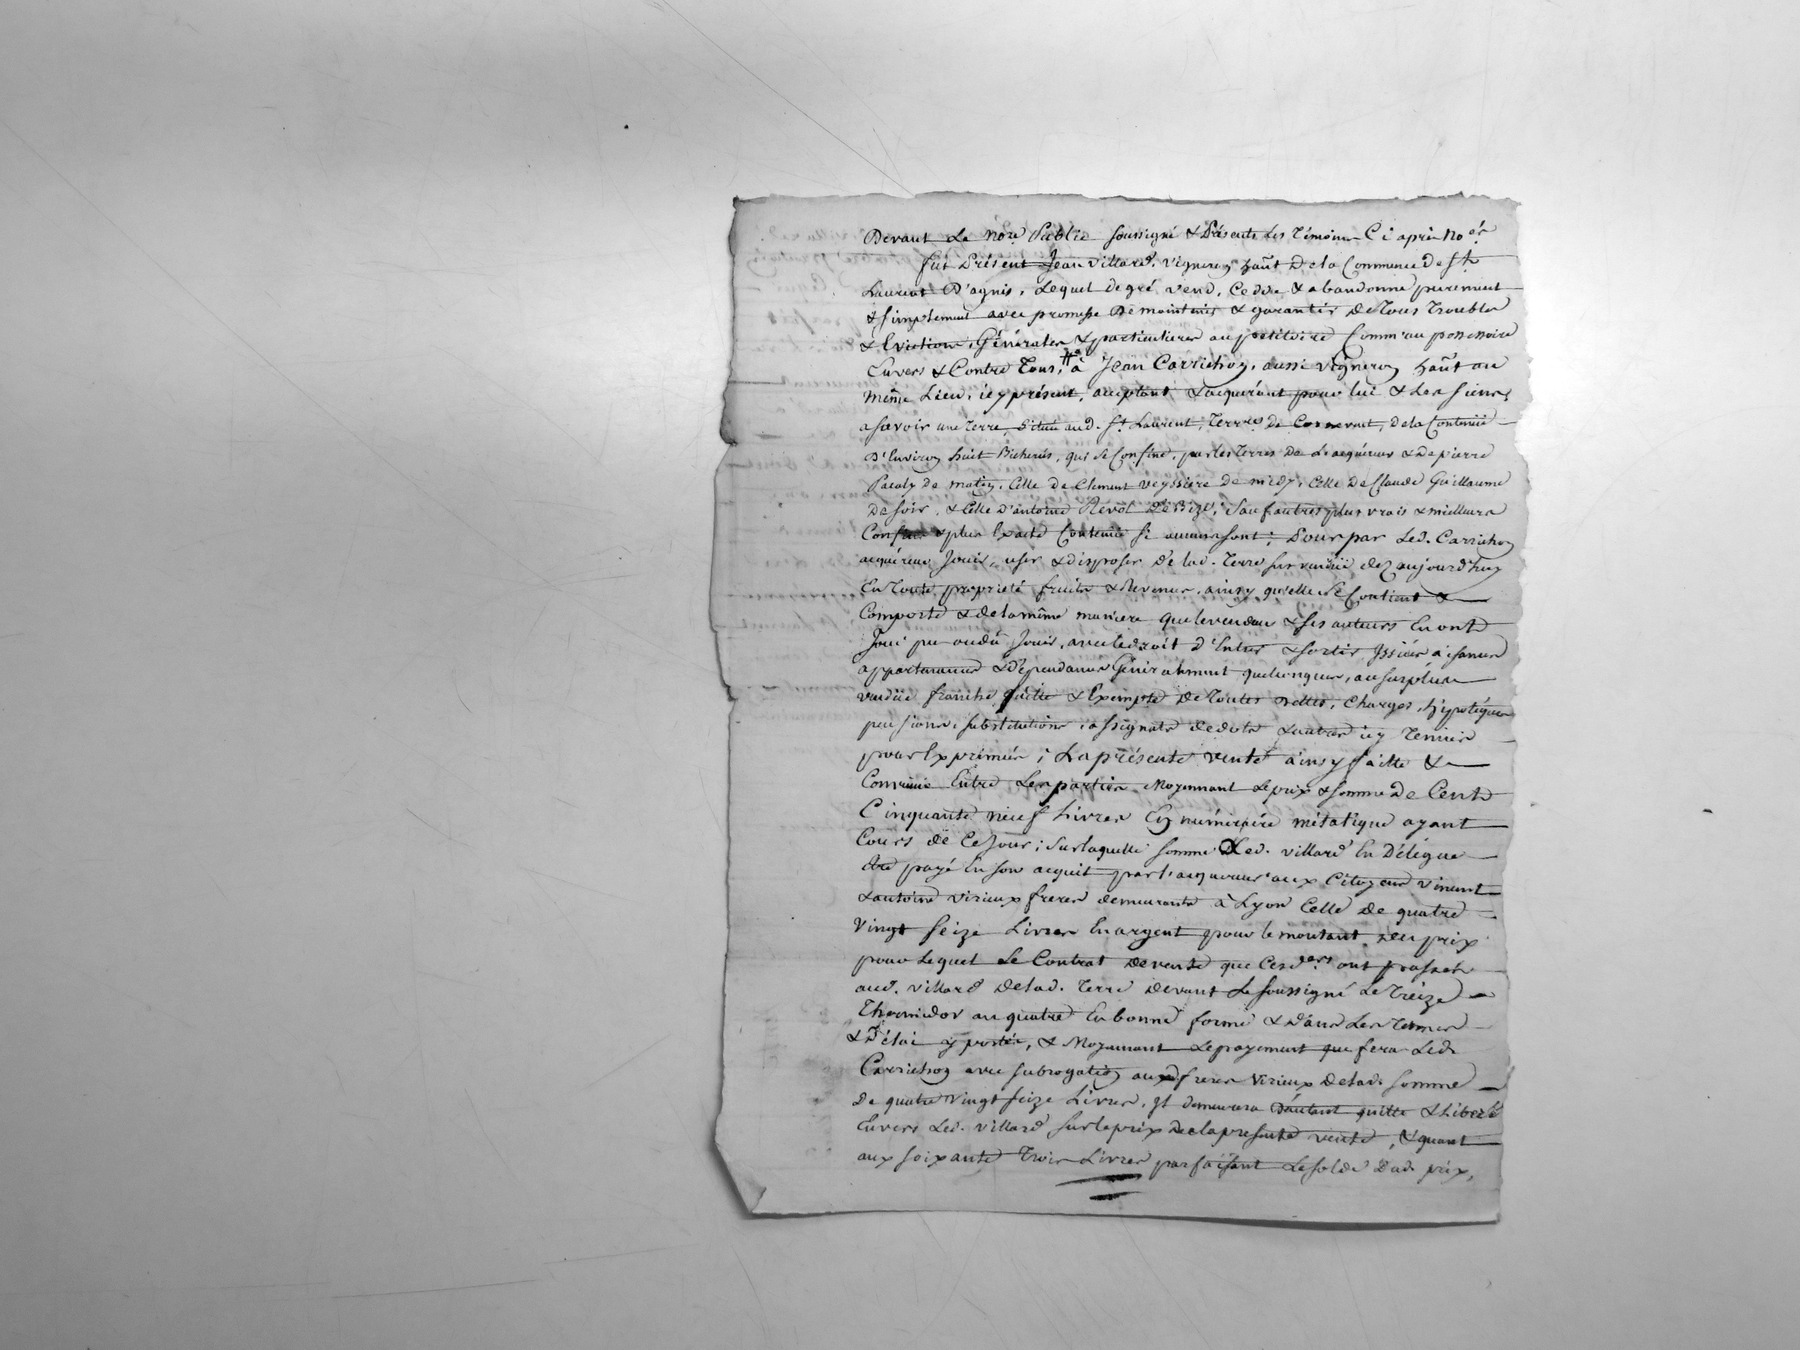 Devant Le No.re Public soussigné & Présents Les Témoins Ci après No.és
fut Présent Jean Villard, vigneron ha͠nt De la Commune de St.
Laurent D'agnis, Lequel de gré vend, Cedde & abandonne purement
& simplement avec promesse De maintenir & garantir De Tous Troubles
& Evictions Générales & particulieres au petitoire Comm'au possessoire
Envers & Contre Tous, # à Jean Carrichon, aussi vigneron ha͠nt au
même Lieu, icy présent, acceptant & acquérant pour lui & Les siens,
a savoir une Terre, Située aud. St. Laurent, Terre de, De la Contenüe
D'Environ huit Bicherées, qui se Confine, par les Terres De L'acquéreur & De pierre
de matin, Celle De Clement Veyssiere De midy, Celle De Claude Guillaume
De soir, & Celle D'antoine Révol De Bize, Sauf autres plus vrais & meilleurs
Confins & plus Exacte Contenüe Si aucuns sont; Pour par Led. Carrichon
acquéreur Jouir, user & disposer De lad. Terre sus vendüe dez aujourd'huy
En Toute propriété fruits & Revenus, ainsy qu'elle Se Contient &
Comporte & de la même maniere que le vendeur & ses auteurs En ont
Joui pu ou dû Jouir, avec le droit d'Entrer & sortir Issües aisances
appartenances & Dépendances Généralement quelconques, au surplus
vendüe franche quitte & Exempte De Toutes Dettes, Charges, hypotéques
pensions, substitutions, assignats de dote & autres icy Tenues
pour Exprimées; La présente vente ainsy faitte &
Convenüe Entre Les parties Moyennant Le prix & somme De Cent
Cinquante neuf Livres En numéraire métalique ayant
Cours De Ce Jour; Sur laquelle somme Led. villard En Délégue
être payé En son acquit par l'acquereur aux Citoyens Vincent
& antoine Virieux freres demeurants à Lyon Celle De quatre
Vingt seize Livres En argent pour le montant Du prix
pour Lequel Le Contrat De vente que Ces d.ers ont passé
aud. villard De lad. Terre Devant Le soussigné Le Treize
Thermidor an quatre En bonne forme & Dans Les Termes
& Délai y portés, & Moyennant Le payement que fera Led.
Carrichon avec subrogation auxd. freres Virieux De lad. somme
De quatre vingt seize Livres, Il demeurera D'autant quitte & Libéré
Envers Led. Villard sur le prix De la présente vente, & quant
aux soixante Trois Livres parfaisant Le solde Dud. prix,